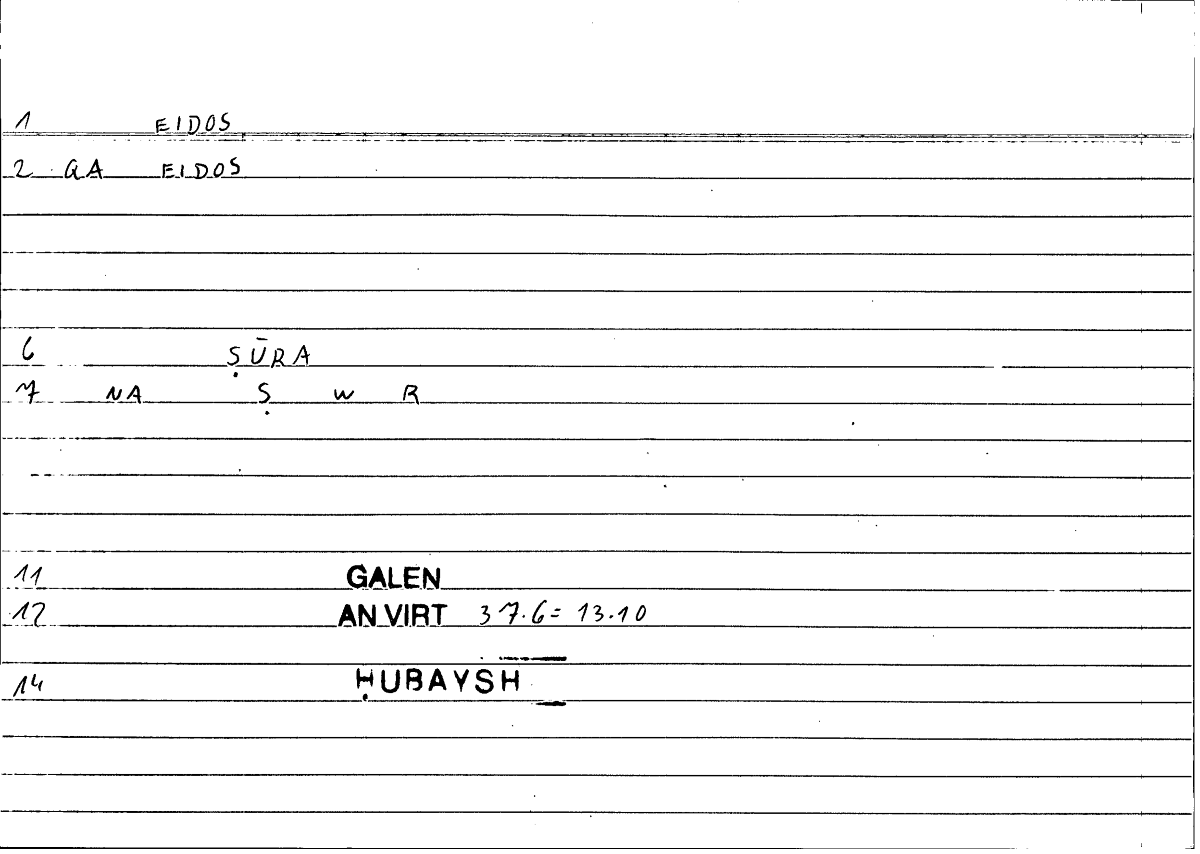 1 EIDOS
2 GA EIDOS
6 ṢŪRA
7 NA Ṣ W R
11 GALEN
12 AN VIRT 37.6 = 13.10
14 ḤUBAYSH